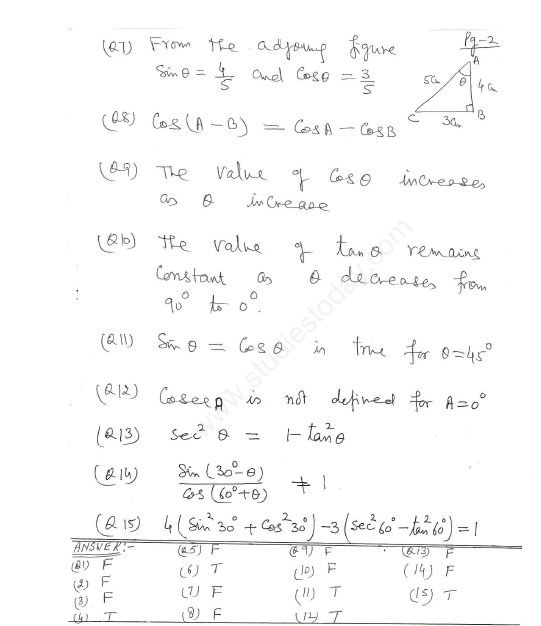 Pg-2
(Q7) From the adjoung figure
Sinθ = 4/5 and Cosθ = 3/5
A
5cm θ 4cm
C 3cm B
(Q8) Cos(A-B) = CosA - CosB
(Q9) The value of Cosθ increases
as θ increase
(Q10) The value of tanθ remains
Constant as θ decreases from
90° to 0°.
(Q11) Sinθ = Cosθ is true for θ=45°
(Q12) CosecA is not defined for A=0°
(Q13) sec²θ = 1-tan²θ
(Q14) Sin(30°-θ)/Cos(60°+θ) ≠ 1
(Q15) 4(Sin²30° + Cos²30°) -3(sec²60° - tan²60°) = 1
ANSWER:- (Q5) F (Q9) F (Q13) F
(Q1) F (6) T (10) F (14) F
(2) F
(3) F (7) F (11) T (15) T
(4) T (8) F (12) T
www.studiestoday.com